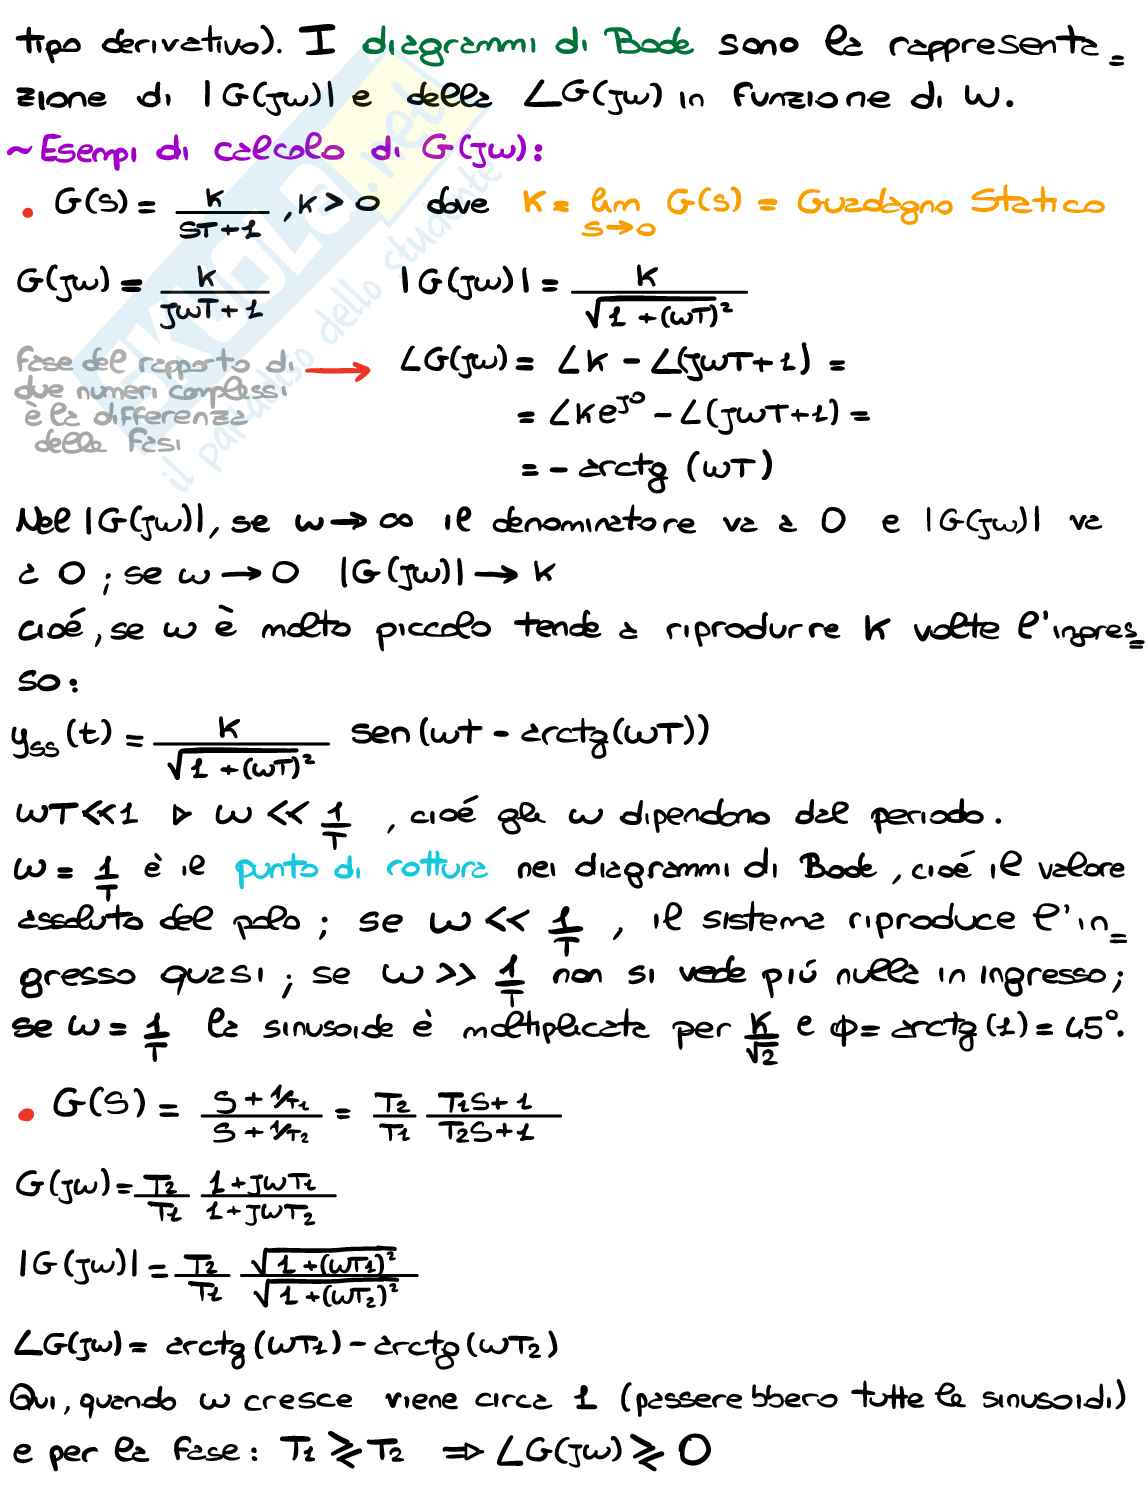 tipo derivativo). I diagrammi di Bode sono la rappresenta=
zione di |G(jω)| e della ∠G(jω) in funzione di ω.
~ Esempi di calcolo di G(jω):
• G(s) = K/(sT+1), K>0 dove K = lim s→0 G(s) = Guadagno Statico
G(jω) = K/(jωT+1) |G(jω)| = K/√(1+(ωT)²)
Fase del rapporto di due numeri complessi è la differenza delle fasi → ∠G(jω) = ∠K - ∠(jωT+1) =
= ∠Ke^j0 - ∠(jωT+1) =
= - arctg (ωT)
Nel |G(jω)|, se ω→∞ il denominatore va a 0 e |G(jω)| va
a 0; se ω→0 |G(jω)|→K
cioé, se ω è molto piccolo tende a riprodurre K volte l'ingres=
so:
yss(t) = K/√(1+(ωT)²) sen(ωt - arctg(ωT))
ωT<<1 ▷ ω << 1/T, cioé gli ω dipendono dal periodo.
ω = 1/T è il punto di rottura nei diagrammi di Bode, cioé il valore
assoluto del polo; se ω << 1/T, il sistema riproduce l'in=
gresso quasi; se ω >> 1/T non si vede piú nulla in ingresso;
se ω = 1/T la sinusoide è moltiplicata per K/√2 e φ = arctg(1) = 45°.
• G(S) = (S + 1/T1)/(S + 1/T2) = T2/T1 (T1S+1)/(T2S+1)
G(jω) = T2/T1 (1+jωT1)/(1+jωT2)
|G(jω)| = T2/T1 √(1+(ωT1)²)/√(1+(ωT2)²)
∠G(jω) = arctg(ωT1) - arctg(ωT2)
Qui, quando ω cresce viene circa 1 (passerebbero tutte le sinusoidi)
e per la fase: T1 ⩾ T2 ⇒ ∠G(jω) ⩾ 0
il paradiso dello studente